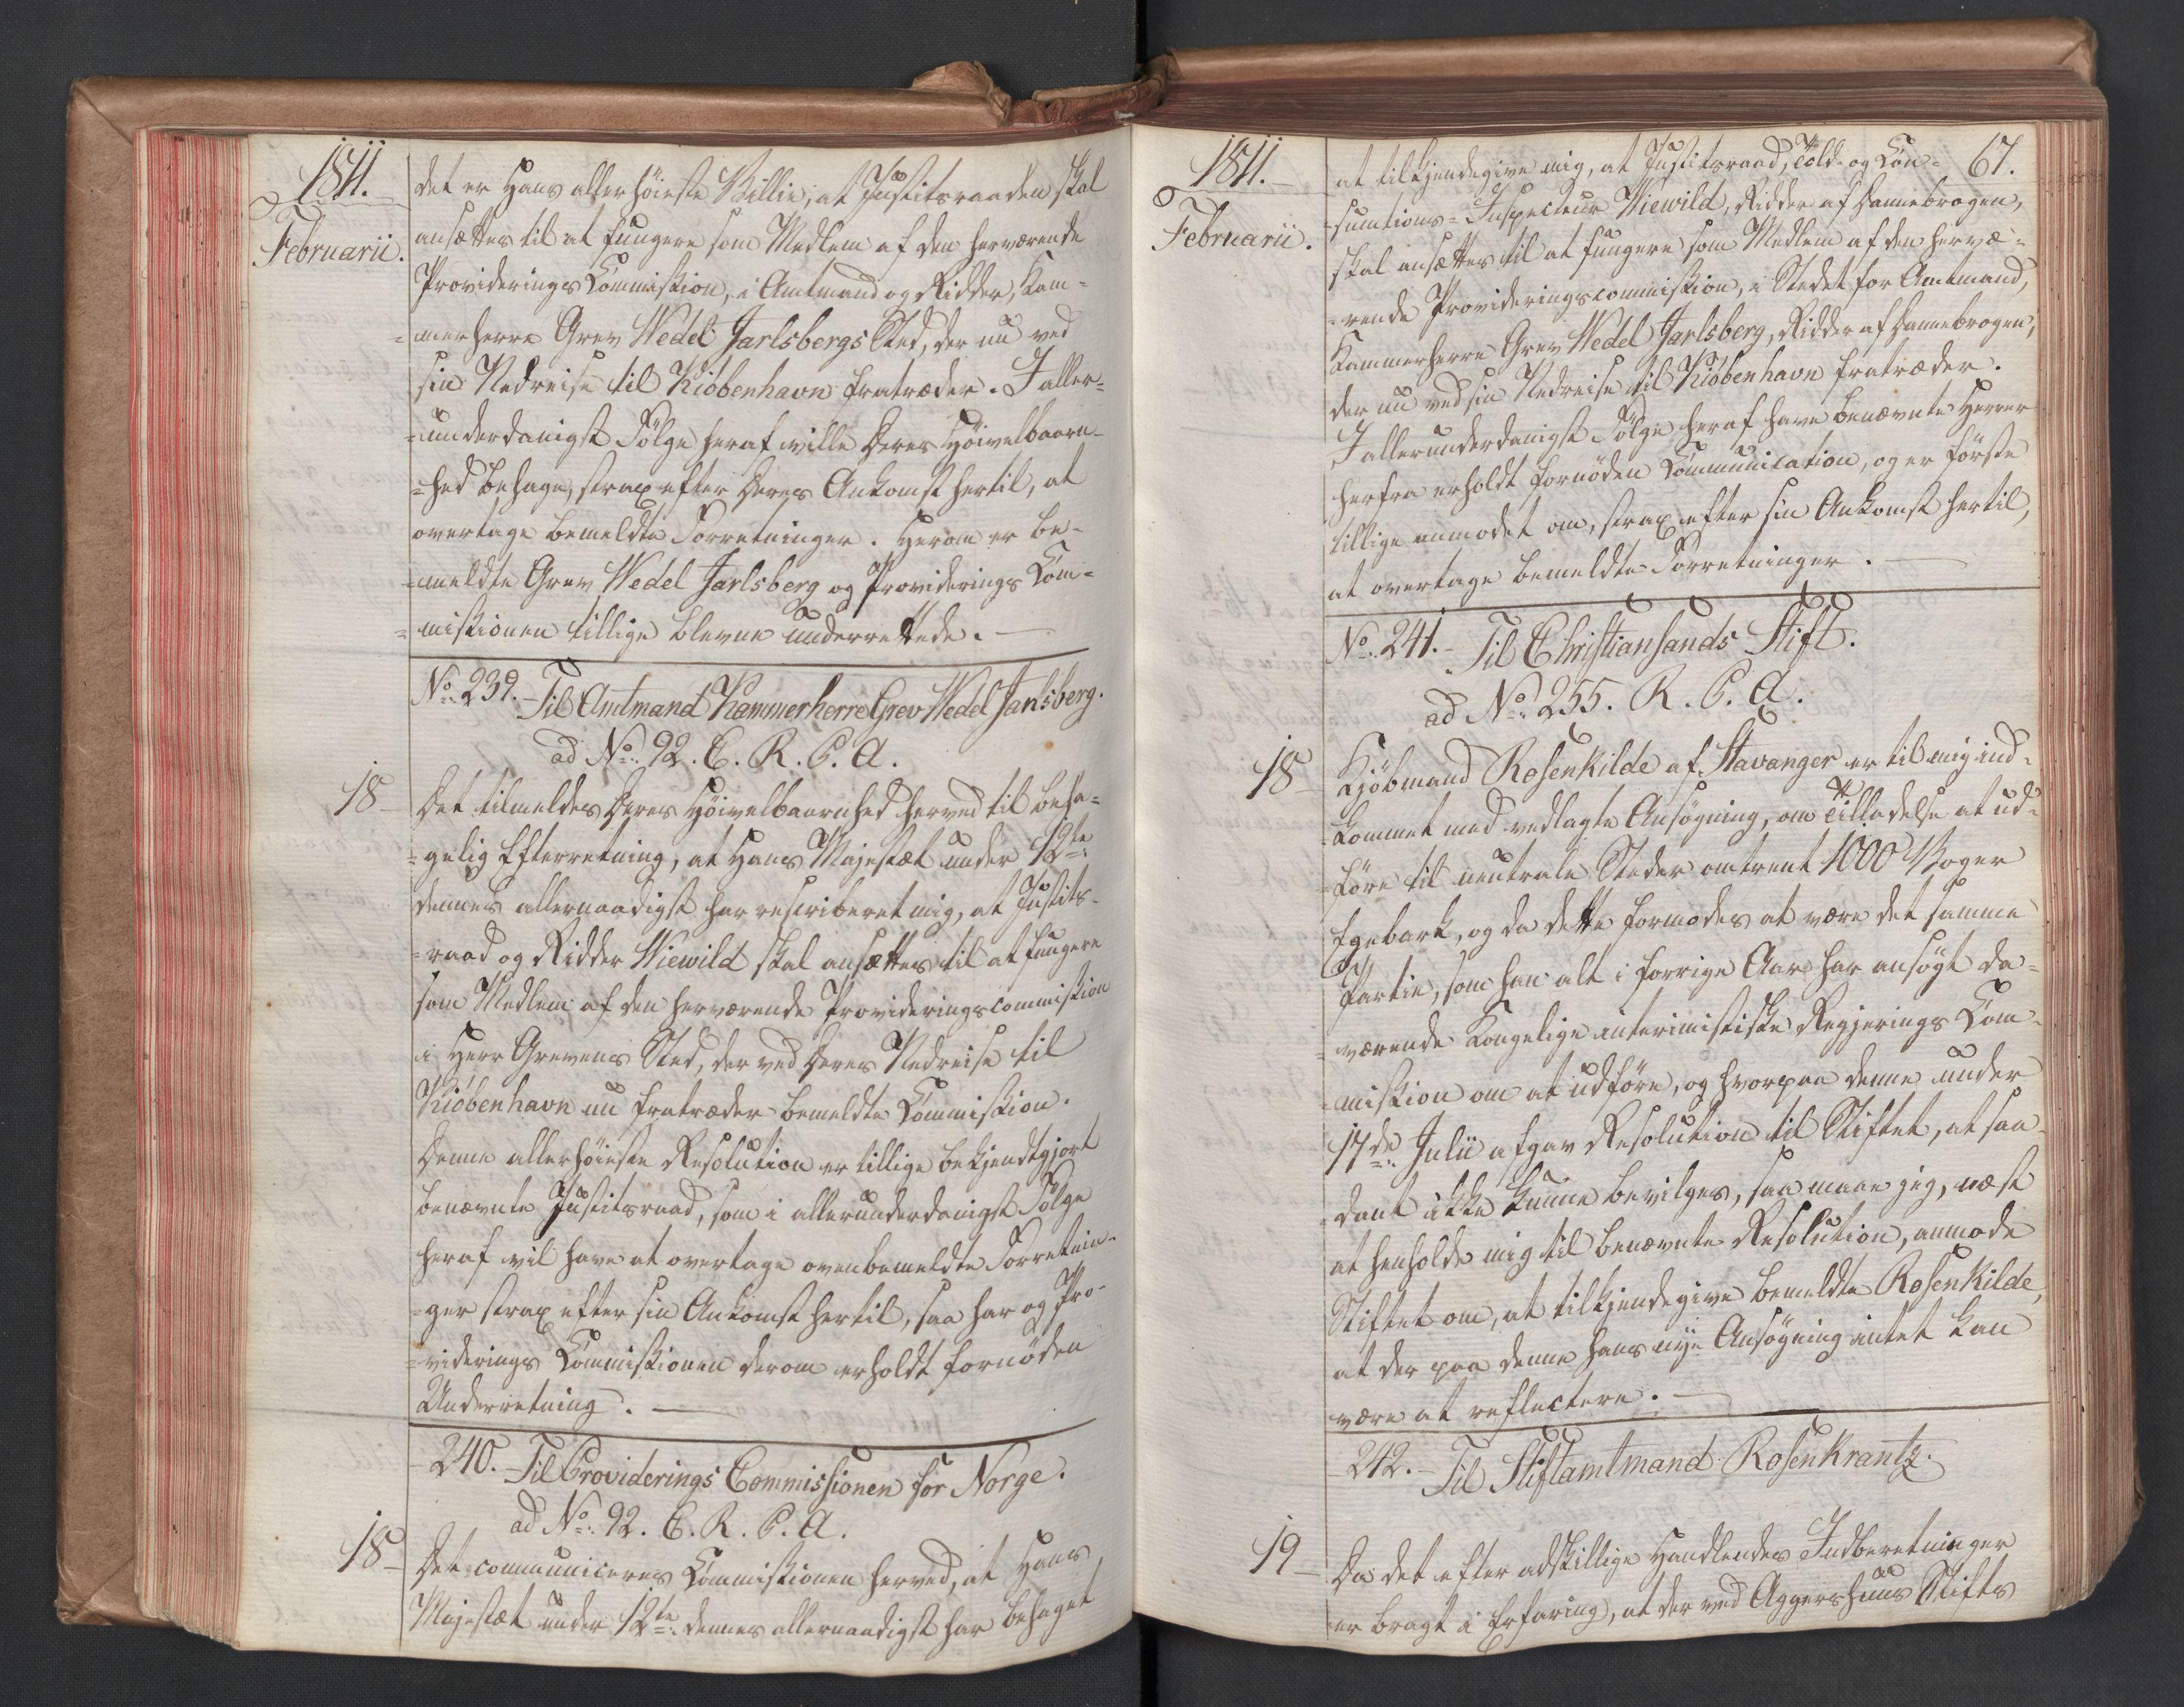 1811.
Februarii.
det er Hans allerhöieste Villie, at Justitsraaden skal
ansættes til at fungere som Medlem af den herværende
Provideringscommission, i Amtmand og Ridder, Kam=
=merherre Grev Wedel Jarlsbergs Sted, der nu ved
sin Nedreise til Kiöbenhavn fratræder. I aller=
=underdanigst Fölge heraf ville Deres Höivelbaarn=
=hed behage, strax efter Deres Ankomst hertil, at
overtage bemeldte Forretninger. Herom er be=
=meldte Grev Wedel Jarlsberg og Providerings Com=
=missionen tillige blevne underrettede. —
No. 239. Til Amtmand Kammerherre Grev Wedel Jarlsberg.
ad No. 92. C. R. P. A.
18 – Det tilmeldes Deres Höivelbaarnhed herved til beha=
=gelig Efterretning, at Hans Majestæt under 12te
dennes allernaadigst har rescriberet mig, at Justits=
=raad og Ridder Wiewild skal ansættes til at fungere
som Medlem af den herværende Provideringscommission
i Herr Grevens Sted, der ved Deres Nedreise til
Kiöbenhavn nu fratræder bemeldte Commission.
Denne allerhöieste Resolution er tillige bekjendtgjort
benævnte Justitsraad, som i allerunderdanigst Fölge
heraf vil have at overtage ovenbemeldte Forretnin=
=ger strax efter sin Ankomst hertil, saa har og Pro=
=viderings Commissionen derom erholdt fornöden
Underretning. —
– 240. Til Providerings Commissionen for Norge.
ad No. 92. C. R. P. A.
18 – Det communiceres Commissionen herved, at Hans
Majestæt under 12te dennes allernaadigst har behaget
1811.
Februarii.
67.
at tilkjendegive mig, at Justitsraad, Told- og Con=
=sumtions=Inspecteur Wiewild, Ridder af Dannebrogen,
skal ansættes til at fungere som Medlem af den hervæ=
=rende Provideringscommission, i Stedet for Amtmand,
Kammerherre Grev Wedel Jarlsberg, Ridder af Dannebrogen,
der nu ved sin Nedreise til Kiöbenhavn fratræder.
I allerunderdanigst Fölge heraf have benævnte Herrer
herfra erholdt fornöden Communication, og er förste
tillige anmodet om, strax efter sin Ankomst hertil,
at overtage bemeldte Forretninger. —
No. 241. – Til Christiansands Stift.
ad No. 255. R. P. A.
18 – Kjöbmand Rosenkilde af Stavanger er til mig ind=
=kommet med vedlagte Ansögning, om Tilladelse at ud=
=före til neutrale Steder omtrent 1000 Voger
Egebark, og da dette formodes at være det samme
Partie, som han alt i forrige Aar har ansögt da=
=værende Kongelige interimistiske Regjerings Com=
=mission om at udföre, og hvorpaa denne under
17de Julii afgav Resolution til Stiftet, at saa=
=dant ikke kunne bevilges, saa maae jeg, næst
at henholde mig til benævnte Resolution, anmode
Stiftet om, at tilkjendegive bemeldte Rosenkilde,
at der paa denne hans nye Ansögning intet kan
være at reflectere. —
– 242. – Til Stiftamtmand Rosenkrantz.
19 – Da det efter adskillige Handlendes Indberetninger
er bragt i Erfaring, at der ved Aggershuus Stifts